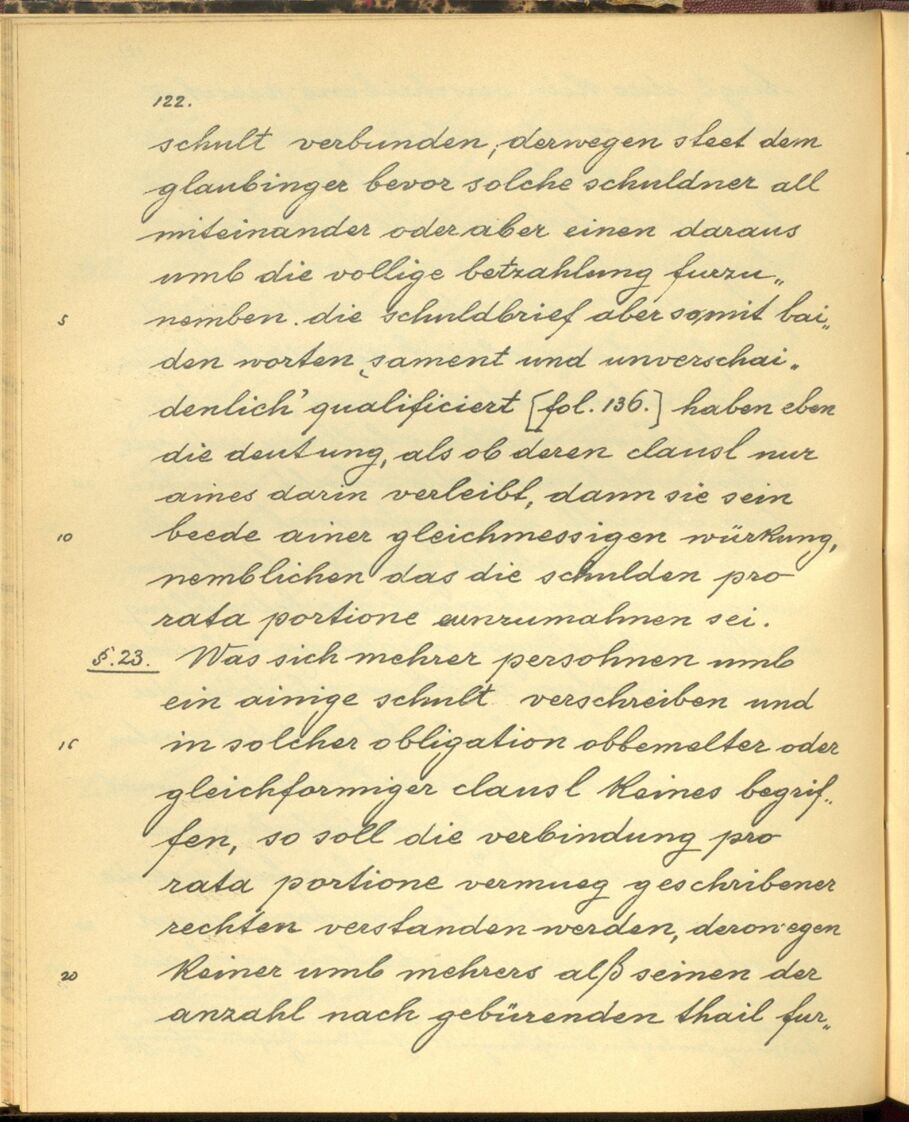 122.
schult verbunden, derwegen steet dem
glaubinger bevor solche schuldner all
miteinander oder aber einen daraus
umb die vollige betzahlung furzu„
5 nemben. die schuldbrief aber so mit bai„
den worten ‚sament und unverschai„
denlich’ qualificiert [fol. 136.] haben eben
die deutung, als ob deren clausl nur
aines darin verleibt, dann sie sein
10 beede ainer gleichmessigen würkung,
nemblichen das die schulden pro
rata portione einzumahnen sei.
§. 23. Was sich mehrer persohnen umb
ein ainige schult verschreiben und
15 in solcher obligation obbemelter oder
gleichformiger clausl keines begrif„
fen, so soll die verbindung pro
rata portione vermueg geschribener
rechten verstanden werden, derowegen
20 keiner umb mehrers alß seinen der
anzahl nach gebürenden thail fur„